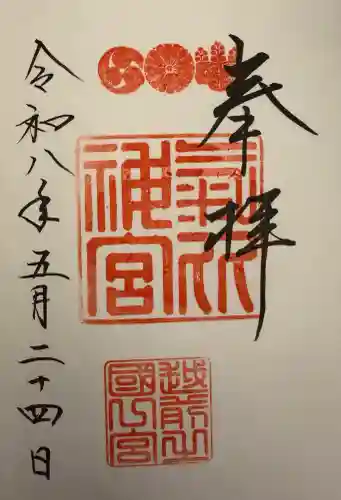 奉拝
越前之國一宮
令和八年五月二十四日